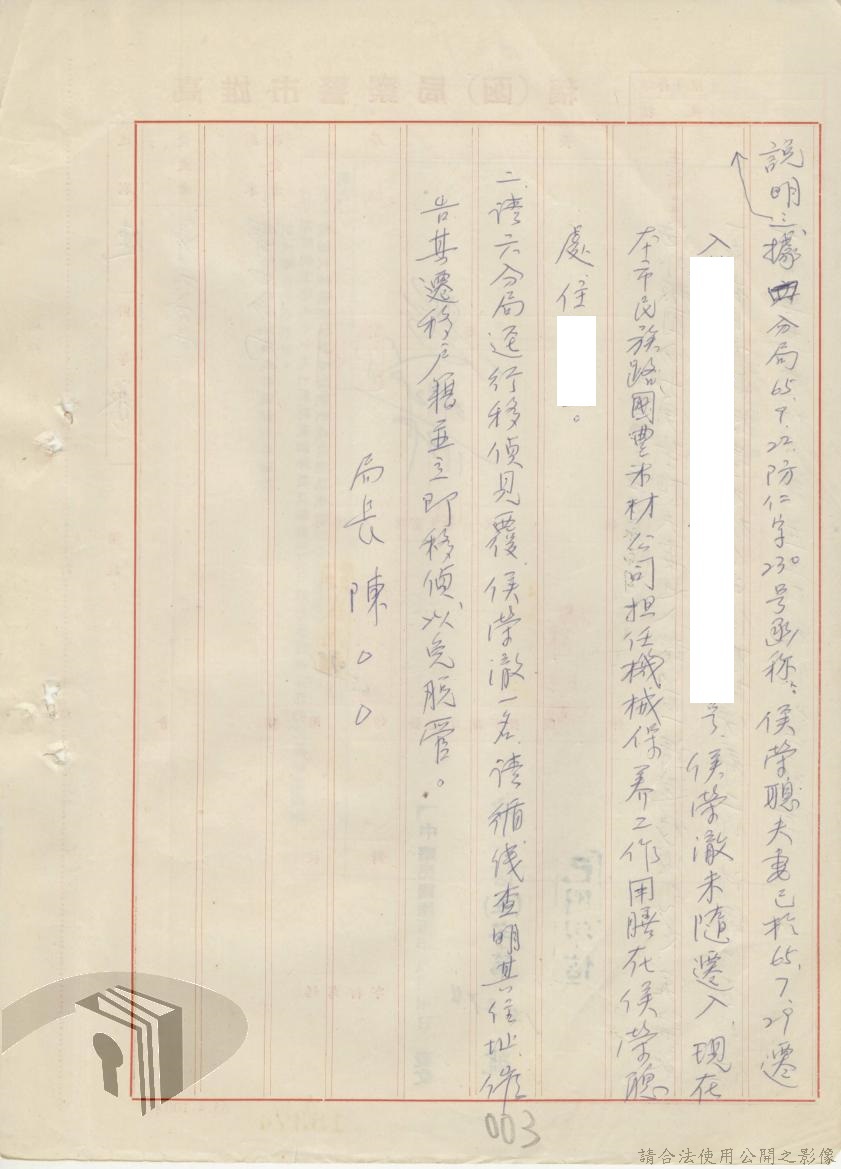 說明：三、據四分局65.9.22.防仁字230号函称：侯榮聰夫妻已於65.7.29遷
入
号，侯榮澈未隨遷入，現在
本市民族路國豐木材公司担任機械保养工作用膳在侯榮聰
處，住
。
二、請六分局逕行移偵見覆，侯榮澈一名，請循线查明其住址，催
告其遷移户籍並立即移偵，以免脱管。
局長 陳○○
003
高雄市警察局（函）稿
請合法使用公開之影像